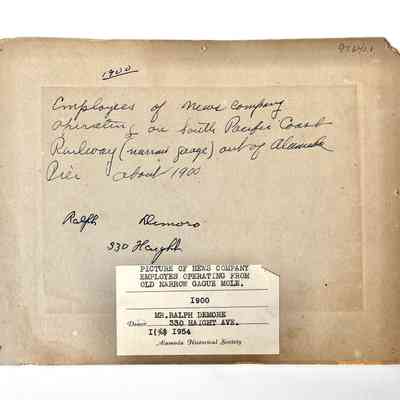 1900
Employees of news company
operating on South Pacific Coast
Railway (narrow gauge) out of Alameda
Pier about 1900
Ralph Demoro
330 Haight
PICTURE OF NEWS COMPANY
EMPLOYES OPERATING FROM
OLD NARROW GAGUE MOLE.
1900
MR.RALPH DEMORE
Donor 330 HAIGHT AVE.
1954
Alameda Historical Society